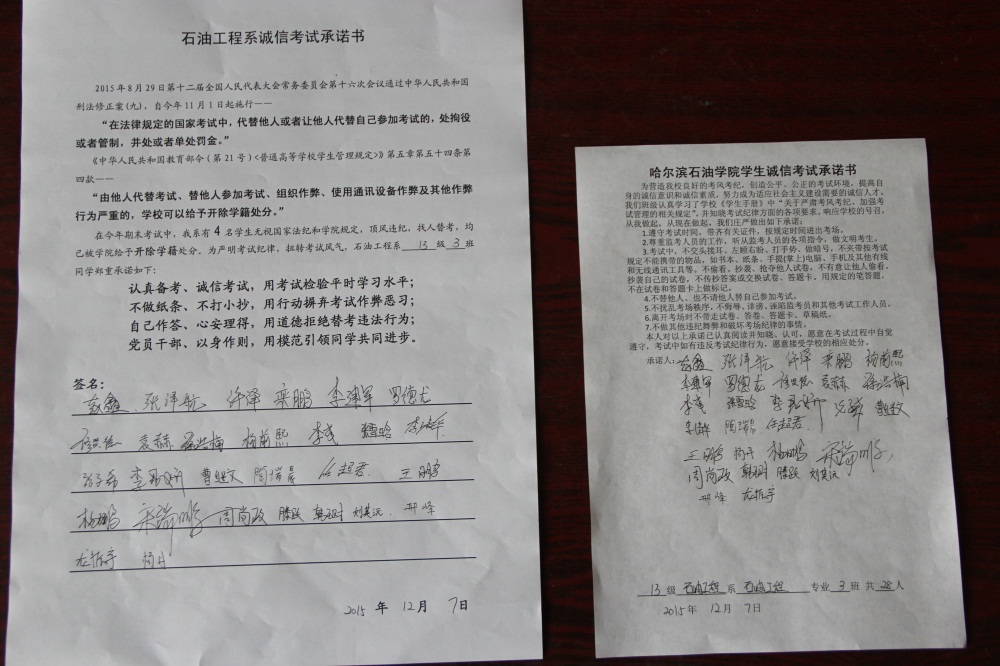 石油工程系诚信考试承诺书
2015年8月29日第十二届全国人民代表大会常务委员会第十六次会议通过中华人民共和国
刑法修正案(九)，自今年11月1日起施行——
“在法律规定的国家考试中，代替他人或者让他人代替自己参加考试的，处拘役
或者管制，并处或者单处罚金。”
《中华人民共和国教育部令（第21号）<普通高等学校学生管理规定>》第五章第五十四条第
四款——
“由他人代替考试、替他人参加考试、组织作弊、使用通讯设备作弊及其他作弊
行为严重的，学校可以给予开除学籍处分。”
在今年期末考试中，我系有4名学生无视国家法纪和学院规定，顶风违纪，找人替考，均
已被学院给于开除学籍处分。为严明考试纪律，扭转考试风气，石油工程系 13 级 3 班
同学郑重承诺如下：
认真备考、诚信考试，用考试检验平时学习水平；
不做纸条、不打小抄，用行动摒弃考试作弊恶习；
自己作答、心安理得，用道德拒绝替考违法行为；
党员干部、以身作则，用模范引领同学共同进步。
签名：
张泽航 仟泽 栾鹏 李建军 罗德龙
袁赫 杨蕑熙 李彧
曹继文 陶瑞晨 任超君 王鹏
杨鹏 宋瑞鹏 周尚政 滕跃 韩冠时 刘其沅 邢峰
尤振宇 杨丹
2015 年 12月 7日
哈尔滨石油学院学生诚信考试承诺书
为营造我校良好的考风考纪，创造公平、公正的考试环境，提高自
身的诚信意识和诚信素质，努力成为适应社会主义建设需要的诚信人才，
我们班级认真学习了学校《学生手册》中“关于严肃考风考纪，加强考
试管理的相关规定”，并知晓考试纪律方面的各项要求。响应学校的号召，
从我做起，从现在做起，我们庄严做出如下承诺：
1.遵守考试时间，带齐有关证件，按规定时间进出考场。
2.尊重监考人员的工作，听从监考人员的各项指令，做文明考生。
3.考试中，不交头接耳、左顾右盼、打手势、做暗号，不夹带按考试
规定不能携带的物品，如书本、纸条、手提(掌上)电脑、手机及其他有线
和无线通讯工具等。不偷看、抄袭、抢夺他人试卷，不有意让他人偷看、
抄袭自己的试卷，不传抄答案或交换试卷、答题卡。用规定的笔答题，
不在试卷和答题卡上做标记。
4.不替他人、也不请他人替自己参加考试。
5.不扰乱考场秩序，不侮辱、诽谤、诬陷监考员和其他考试工作人员。
6.离开考场时不带走试卷、答卷、答题卡、草稿纸。
7.不做其他违纪舞弊和破坏考场纪律的事情。
本人对以上承诺已认真阅读并知晓、认可，愿意在考试过程中自觉
遵守，考试中如有违反考试纪律行为，愿意接受学校的相应处分。
承诺人： 张泽航 仟泽 栾鹏 杨蕑熙
李建军 罗德龙 袁赫
李彧 曹继文
陶瑞晨 任超君
王鹏 杨丹 杨鹏 宋瑞鹏
周尚政 韩冠时 滕跃 刘其沅
邢峰 尤振宇
13 级 石油工程 系 石油工程 专业 3 班 共 28 人
2015年 12月 7日